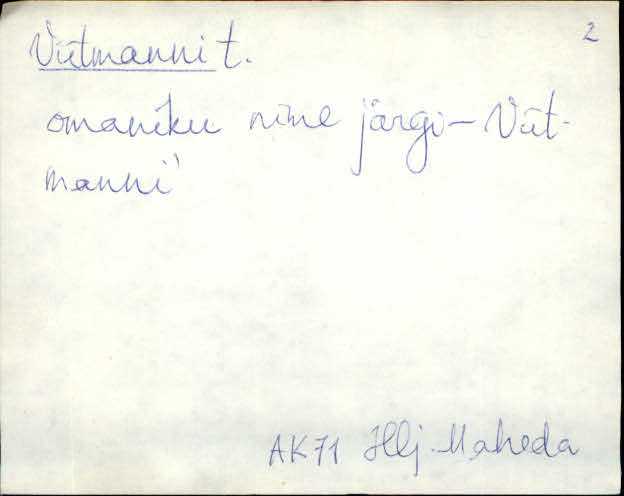 2
Viitmanni t.
omaniku nime järgi – Viit-
manni
AK71 Hlj. Maheda